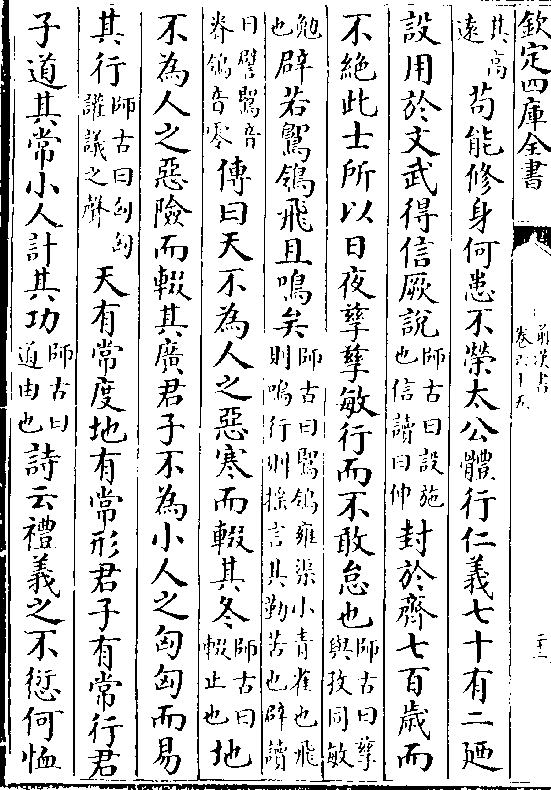 欽定四庫全書
前漢書
卷六十五
二十二
其高遠苟能修身何患不榮太公體行仁義七十有二廼
設用於文武得信厥說師古曰設施也信讀曰伸封於齊七百歲而
不絕此士所以日夜孳孳敏行而不敢怠也師古曰孳與孜同敏
勉也辟若鶺鴒飛且鳴矣師古曰鶺鴒雍渠小青雀也飛則鳴行則搖言其勤苦也辟讀
曰譬鶺音脊鴒音零傳曰天不為人之惡寒而輟其冬師古曰輟止也地
不為人之惡險而輟其廣君子不為小人之匈匈而易
其行師古曰匈匈讙議之聲天有常度地有常形君子有常行君
子道其常小人計其功師古曰道由也詩云禮義之不愆何恤